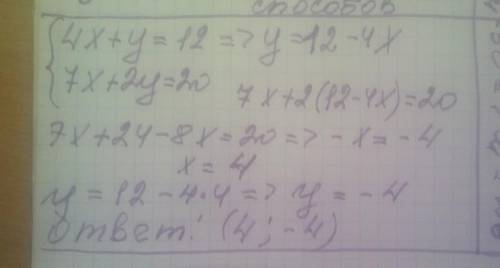 способов
{ 4x+y=12 => y=12-4x
7x+2y=20 7x+2(12-4x)=20
7x+24-8x=20 => -x=-4
x=4
y=12-4*4 => y=-4
ответ: (4;-4)